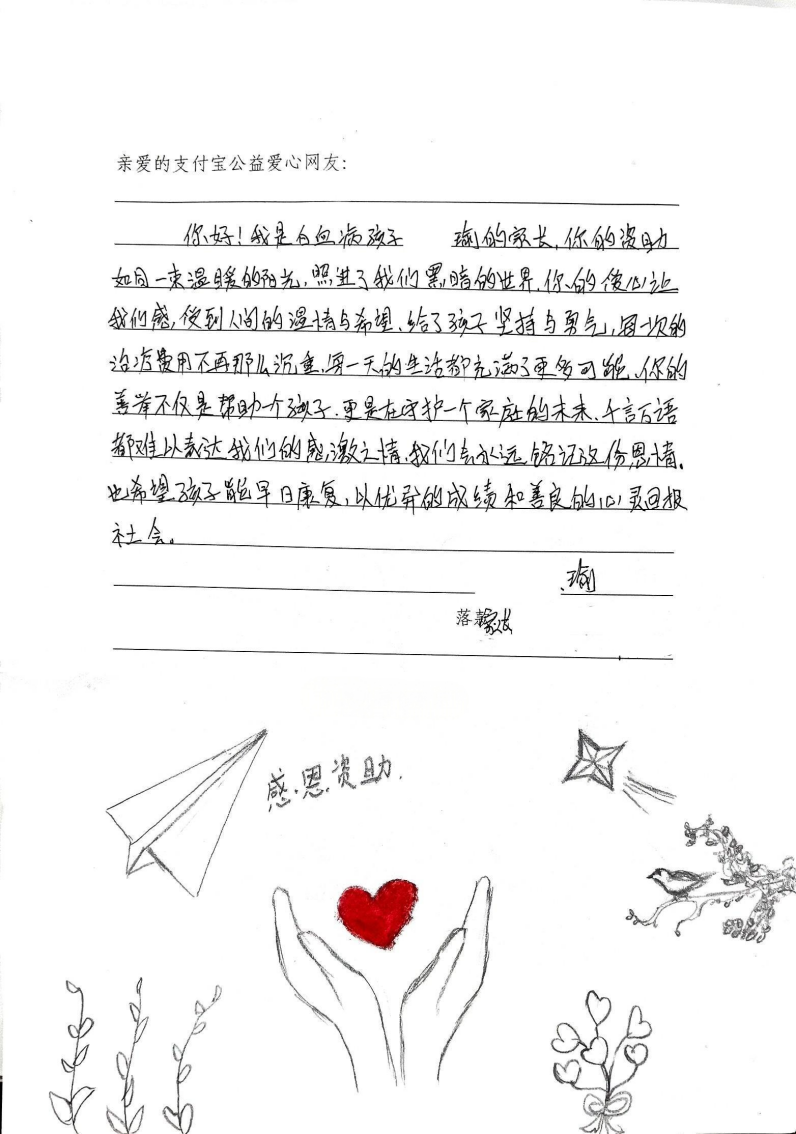 亲爱的支付宝公益爱心网友:
你好!我是白血病孩子 瑜的家长,你的资助
如同一束温暖的阳光,照进了我们黑暗的世界.你的爱心让
我们感受到人间的温情与希望、给了孩子坚持与勇气,每一次的
治疗费用不再那么沉重.每一天的生活都充满了更多可能、你的
善举不仅是帮助一个孩子.更是在守护一个家庭的未来、千言万语
都难以表达我们的感激之情、我们会永远铭记这份恩情.
也希望孩子能早日康复,以优异的成绩和善良的心灵回报
社会。
瑜
落款
感恩资助.